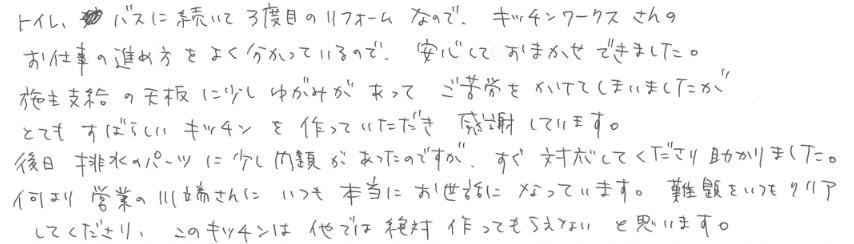 トイレ、バスに続いて3度目のリフォームなので、キッチンワークスさんの
お仕事の進め方をよく分かっているので、安心しておまかせできました。
施主支給の天板に少しゆがみがあってご苦労をかけてしまいましたが
とてもすばらしいキッチンを作っていただき感謝しています。
後日排水のパーツに少し問題があったのですが、すぐ対応してくださり助かりました。
何より営業の川端さんにいつも本当にお世話になっています。難題をいつもクリア
してくださり、このキッチンは他では絶対作ってもらえないと思います。